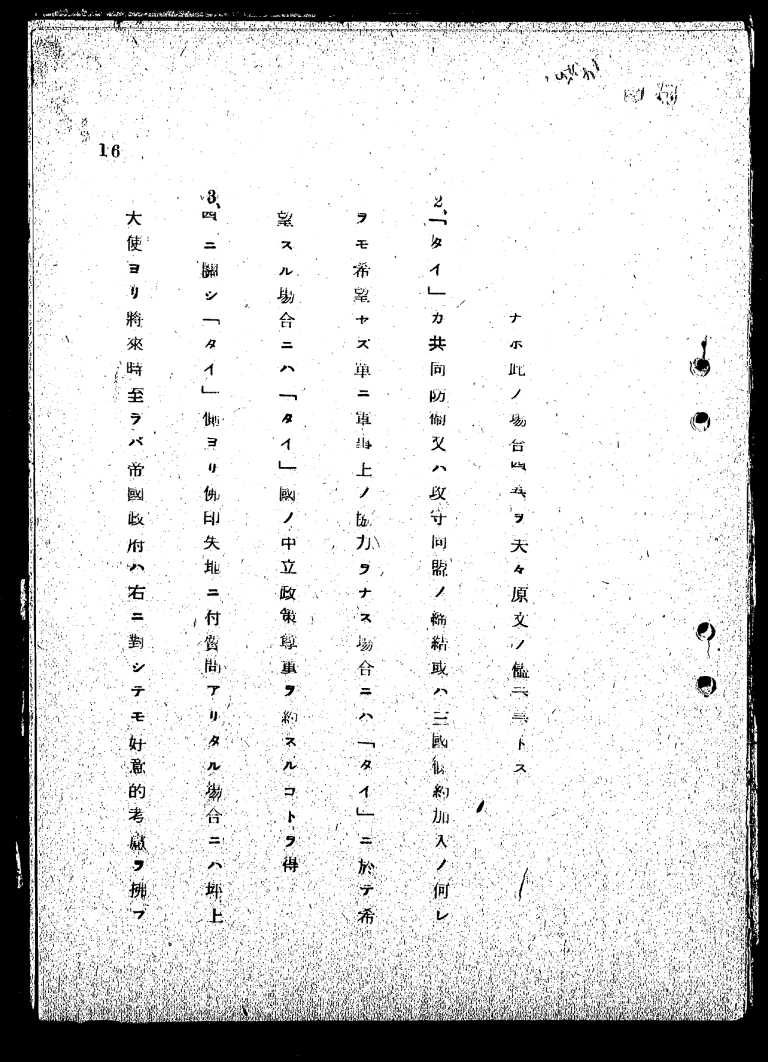 ナホ此ノ場合四、五、ヲ夫々原文ノ儘二、三、トス
2、「タイ」カ共同防衞又ハ攻守同盟ノ締結或ハ三國條約加入ノ何レ
ヲモ希望セズ單ニ軍事上ノ協力ヲナス場合ニハ「タイ」ニ於テ希
望スル場合ニハ「タイ」國ノ中立政策尊重ヲ約スルコトヲ得
3、四ニ關シ「タイ」側ヨリ佛印失地ニ付質問アリタル場合ニハ坪上
大使ヨリ將來時至ラバ帝國政府ハ右ニ對シテモ好意的考慮ヲ拂フ
16